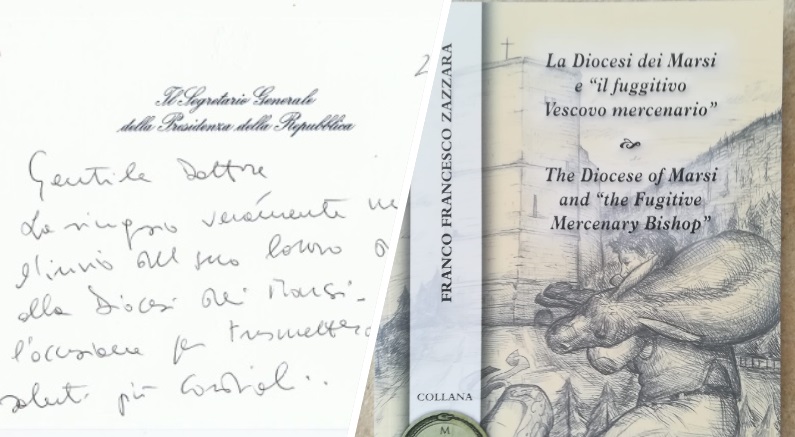 2
Il Segretario Generale
della Presidenza della Repubblica
Gentile Dottore
La ringrazio veramente
l'invio del suo lavoro
alla Diocesi dei Marsi -
l'occasione per trasmetter
saluti più cordiali..
FRANCO FRANCESCO ZAZZARA
COLLANA
M
La Diocesi dei Marsi
e “il fuggitivo
Vescovo mercenario”
The Diocese of Marsi
and “the Fugitive
Mercenary Bishop”